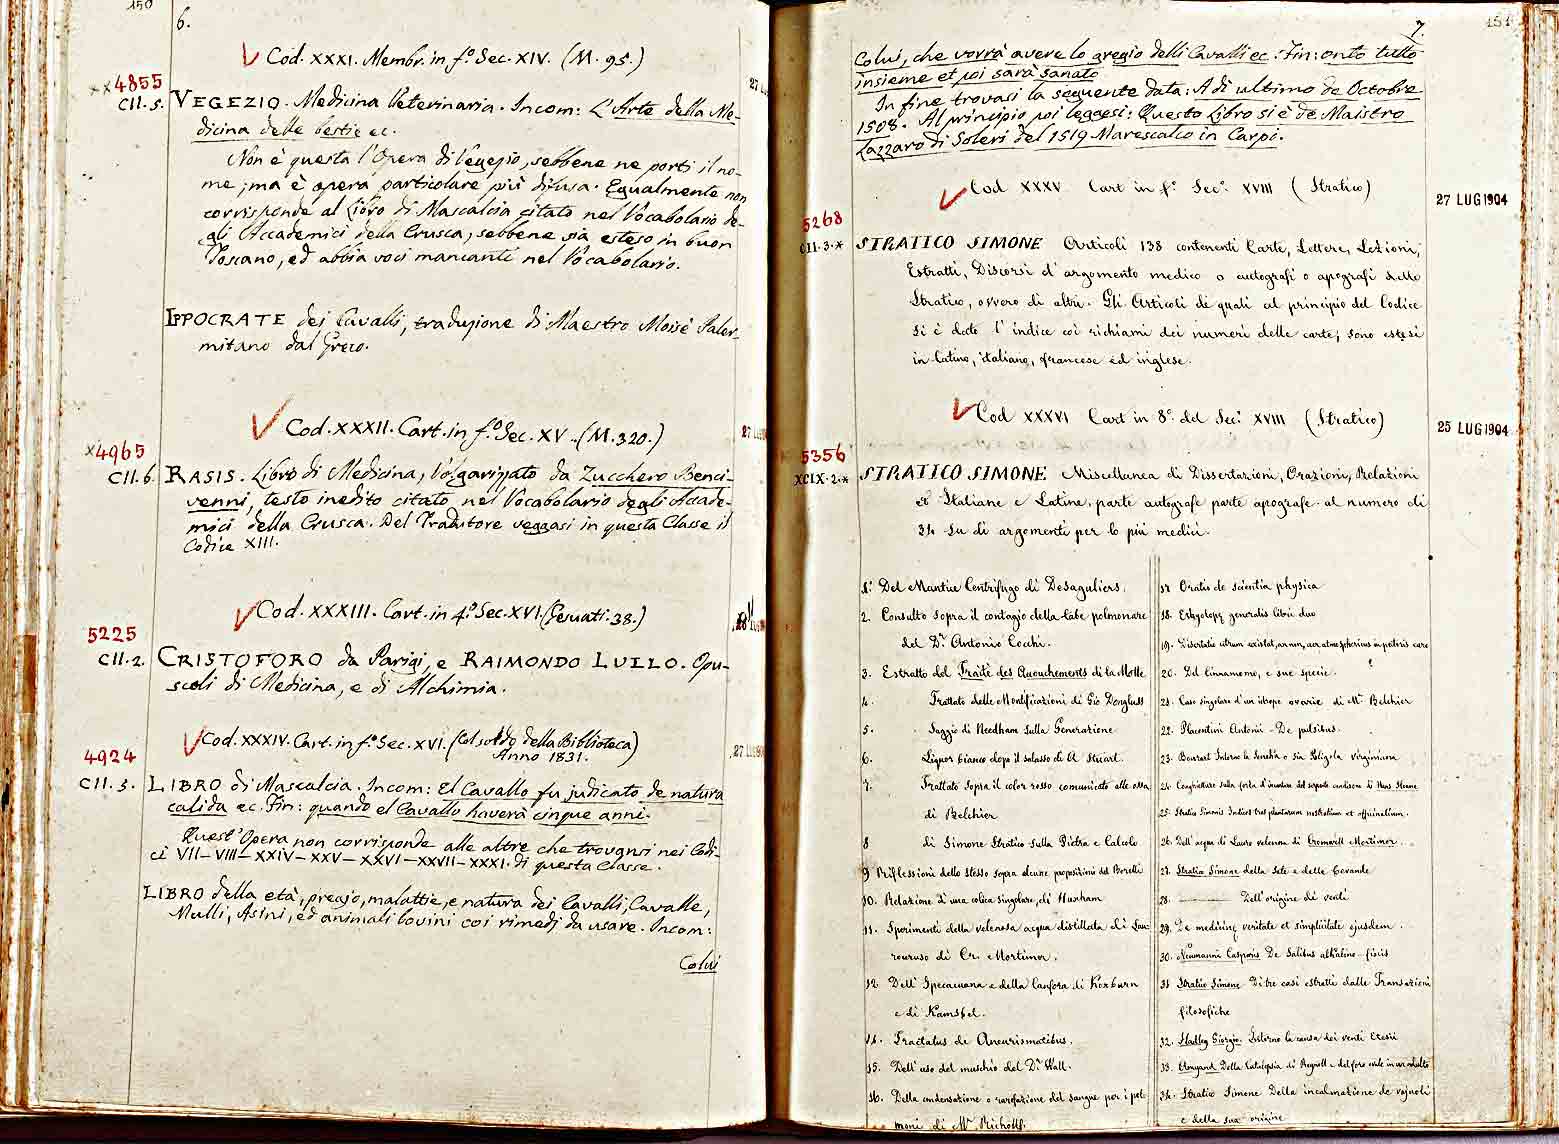 150
6.
Cod. XXXI. Membr. in f.º Sec. XIV. (M. 95.)
xx4855
CII. 5. VEGEZIO. Medicina Veterinaria. Incom: L'Arte della Me-
dicina delle bestie ec.
Non è questa l'Opera di Vegezio, sebbene ne porti il no-
me; ma è opera particolare più difusa. Egualmente non
corrisponde al Libro di Mascalcia citato nel Vocabolario de-
gli Accademici della Crusca, sebbene sia esteso in buon
Toscano, ed abbia voci mancanti nel Vocabolario.
IPPOCRATE dei Cavalli, traduzione di Maestro Moisè Paler-
mitano dal Greco.
Cod. XXXII. Cart. in f.º Sec. XV. (M. 320.)
x4965
CII. 6. RASIS. Libro di Medicina, Volgarizzato da Zucchero Benci-
venni, testo inedito citato nel Vocabolario degli Accade-
mici della Crusca. Del Tradutore veggasi in questa Classe il
Codice XIII.
Cod. XXXIII. Cart. in 4.º Sec. XVI. (Gesuati. 38.)
5225
CII. 2. CRISTOFORO da Parigi, e RAIMONDO LULLO. Opu-
scoli di Medicina, e di Alchimia.
Cod. XXXIV. Cart. in f.º Sec. XVI. (Col soldo della Biblioteca)
Anno 1831.
4924
CII. 3. LIBRO di Mascalcia. Incom: El Cavallo fu judicato de natura
calida ec. Fin: quando el Cavallo haverà cinque anni.
Quest'Opera non corrisponde alle altre che trovansi nei Codi-
ci VII–VIII–XXIV–XXV–XXVI–XXVII–XXXI. di questa Classe.
LIBRO della età, pregio, malattie, e natura dei Cavalli, Cavalle,
Mulli, Asini, ed animali bovini coi rimedj da usare. Incom:
Colui
7.
151
Colui, che vorrà avere lo gregio delli Cavalli ec. Fin: onto tutto
insieme et poi sarà sanato
In fine trovasi la seguente data: A dì ultimo de Octobre
1508. Al principio poi leggesi: Questo Libro si è de Maistro
Lazzaro di Soleri del 1519 Marescalco in Carpi.
Cod XXXV Cart in f.º Sec.º XVIII (Stratico)
27 LUG 1904
5268
CII. 3.* STRATICO SIMONE Articoli 138 contenenti Carte, Lettere, Lezioni,
Estratti, Discorsi d'argomento medico o autografi o apografi dello
Stratico, ovvero di altri. Gli Articoli de quali al principio del Codice
si è dato l'indice coi richiami dei numeri delle carte, sono estesi
in latino, italiano, francese ed inglese.
Cod XXXVI Cart in 8º del Sec.º XVIII (Stratico)
25 LUG 1904
5356
XCIX. 2.* STRATICO SIMONE Miscellanea di Dissertazioni, Orazioni, Relazioni
ec Italiane e Latine, parte autografe parte apografe al numero di
34 su di argomenti per lo più medici.
1. Del Mantice Centrifugo di Desaguliers.
2. Consulto sopra il contagio della tabe polmonare
del D.r Antonio Cocchi.
3. Estratto del Traitè des Accouchements di la Motte
4. Trattato delle Modificazioni di Gio Douglass
5. Saggio di Needham sulla Generazione
6. Liquor bianco dopo il salasso di A. Stuart.
7. Trattato sopra il color rosso comunicato alle ossa
di Belchier
8 di Simone Stratico sulla Pietra e Calcolo
9 Riflessioni dello stesso sopra alcune proposizioni del Borelli
10. Relazione d'una colica singolare, di Huxham
11. Sperimenti della velenosa acqua distillata di Lau-
roceraso di Cr. Mortimer.
12. Dell'Ipecacuana e della Canfora di Roxburn
e di
14. Tractatus de Aneurismatibus.
15. Dell'uso del muschio del D.r Wall.
16. Della condensazione o rarefazione del sangue per i pol-
moni di M.r Nicholls.
17 Oratio de scientia physica
18. generalis libri duo
19. Dissertatio utrum existat, nec non, aer atmosphericus in
20. Del Cinnamomo, e sue specie.
21. Caso singolare d'un idrope ovarie di M.r Belchier
22. Placentini Antonii - De pulsibus.
23. Intorno la Senekà o sia Poligola virginiana
24. Congetture sulla forza d'
25. Stratico Simonis Indices tres plantarum nostratium et officinalium.
26. Dell'acqua di Lauro velenosa di Cromwell Mortimer.
27. Stratico Simone della Sete e delle bevande
28. Dell'origine di venti
29. De medicinę veritate et simplicitate ejusdem.
30. Neumanni Casparis De Salibus alkalino-fixis
31 Stratico Simone Di tre casi estratti dalle Transazioni
filosofiche
32. Hadley Giorgio. Intorno la causa dei venti Etesii
33. Amyand Della Catalepsia di Reynell e del foro ovale in un adulto
34. Stratico Simone Della incalmazione de vajuoli
e della sua origine